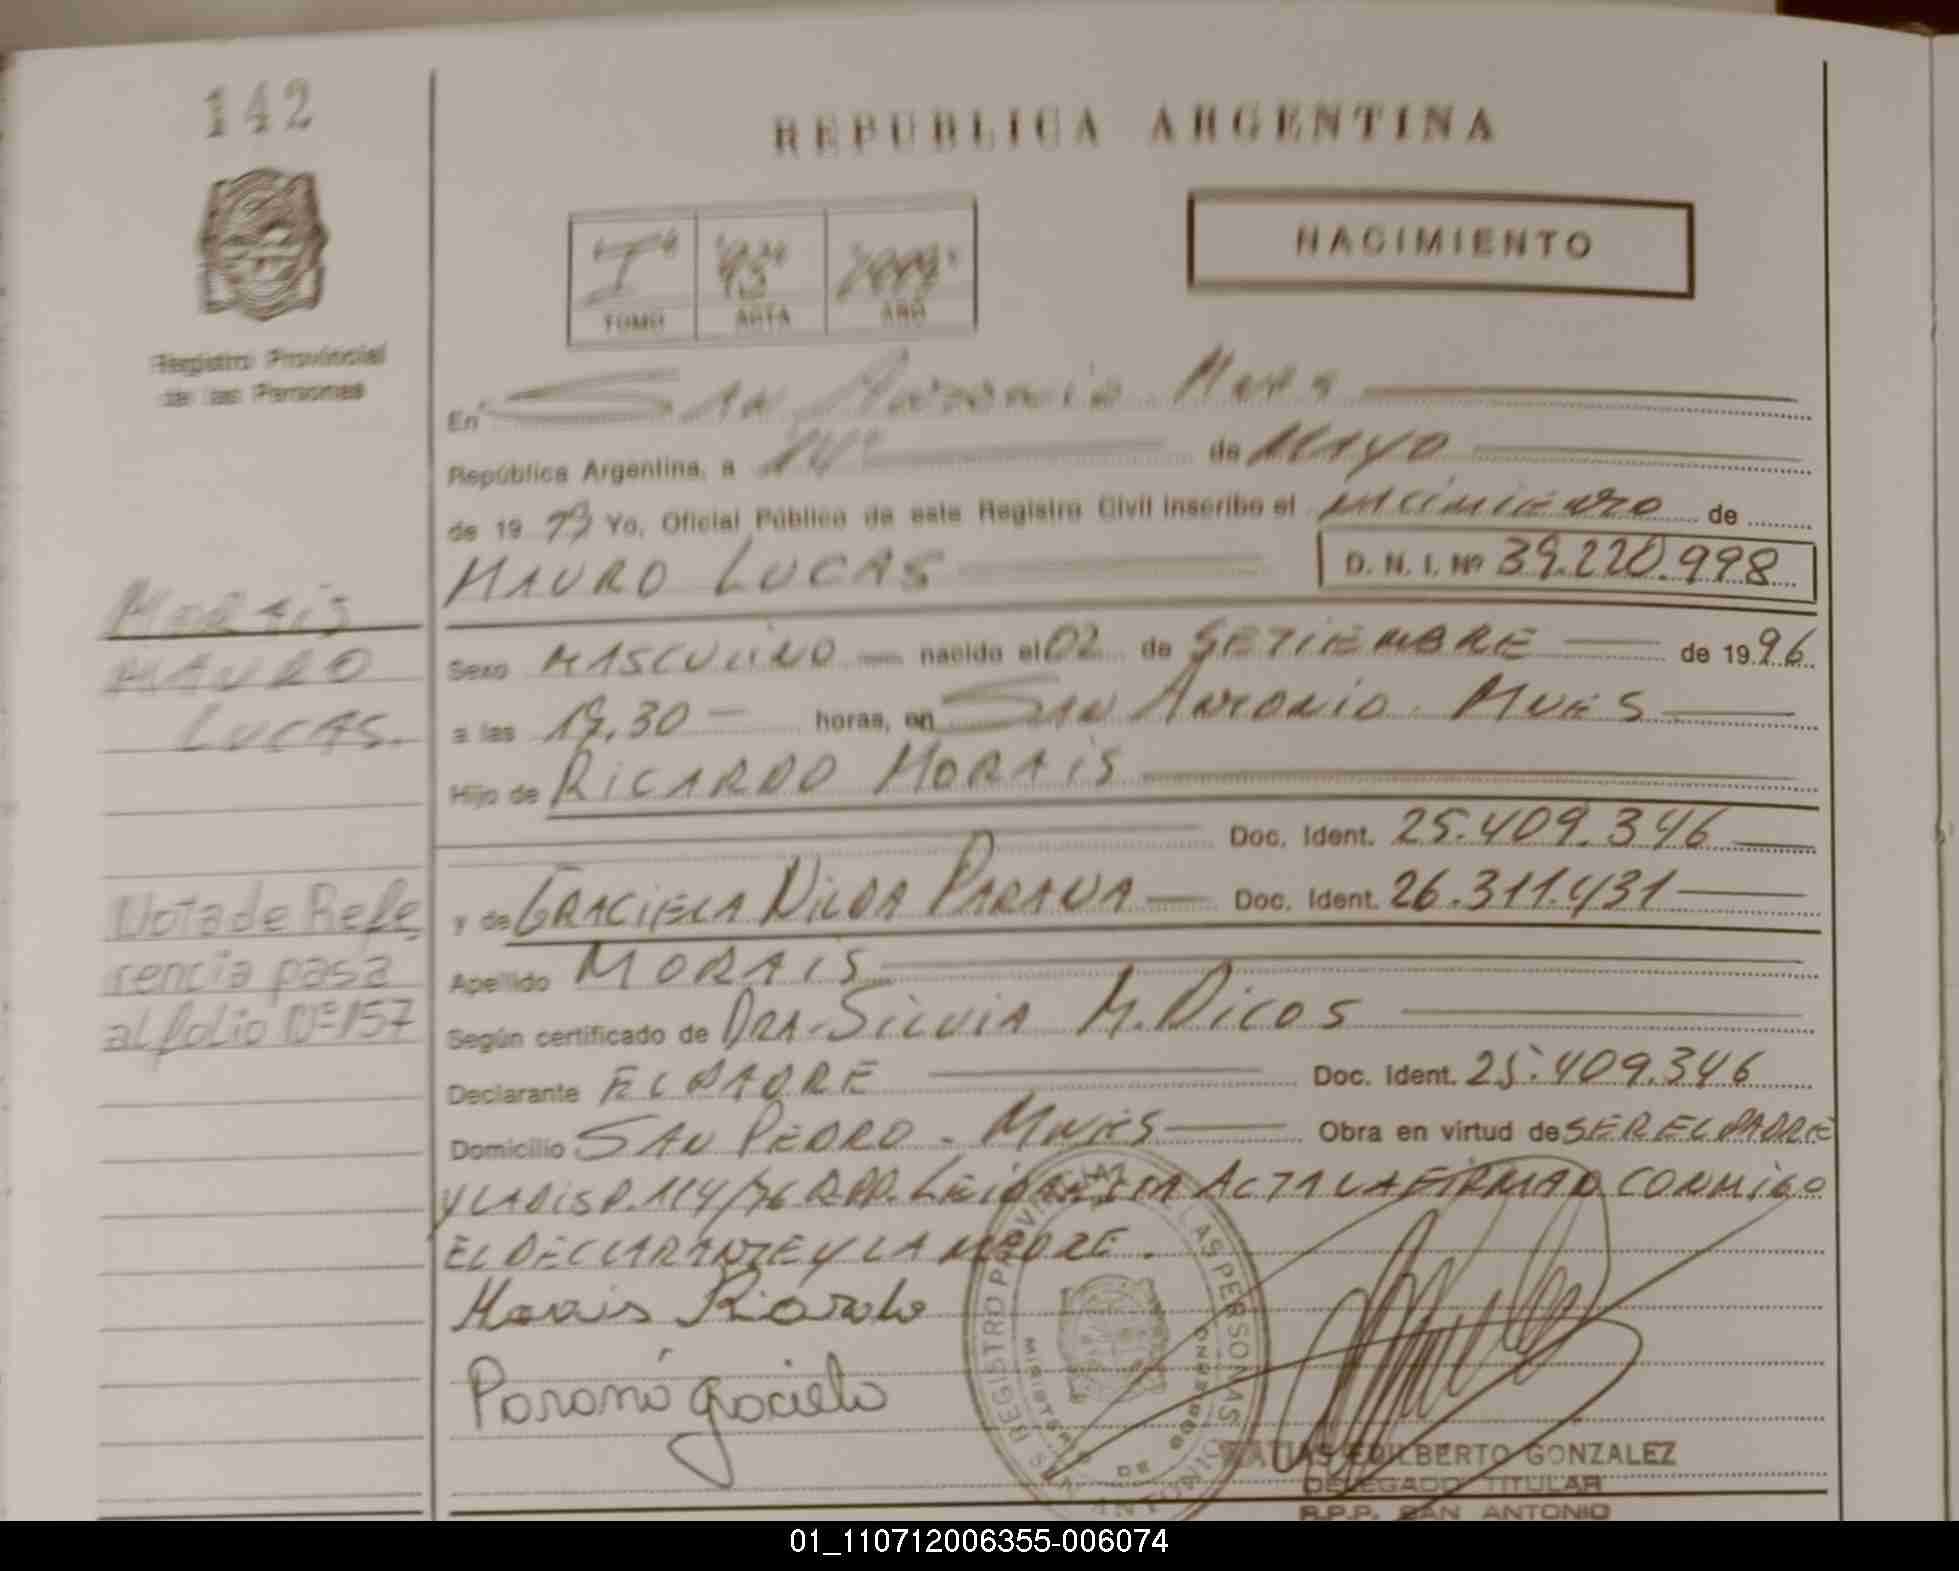 142
REPUBLICA ARGENTINA
NACIMIENTO
"I"
TOMO ACTA AÑO
Registro Provincial
de las Personas
En San Antonio Mnes
República Argentina, a de Mayo
de 19 99 Yo, Oficial Público de este Registro Civil inscribo el nacimiento de
MAURO LUCAS D. N. I. Nº 39.220.998
MORAIS
MAURO
LUCAS.
Sexo MASCULINO nacido el 02 de SETIEMBRE de 1996
a las 19.30 horas, en SAN ANTONIO. MNES
Hijo de RICARDO MORAIS
Doc. Ident. 25.409.346
y de GRACIELA NILDA PARANA Doc. Ident. 26.311.431
Nota de Refe
rencia pasa
al folio Nº 157
Apellido MORAIS
Según certificado de DRA. SILVIA M. DICOS
Declarante EL PADRE Doc. Ident. 25.409.346
Domicilio SAN PEDRO. MNES Obra en virtud de SER EL PADRE
Y LA DISP. 114/76 RPP. LEIDA ESTA ACTA LA FIRMAN CONMIGO
EL DECLARANTE Y LA MADRE.
Morais Ricardo
Paraná Graciela
REGISTRO PROVINCIAL DE LAS PERSONAS
MATIAS EDILBERTO GONZALEZ
DELEGADO TITULAR
R.P.P. SAN ANTONIO
01_110712006355-006074